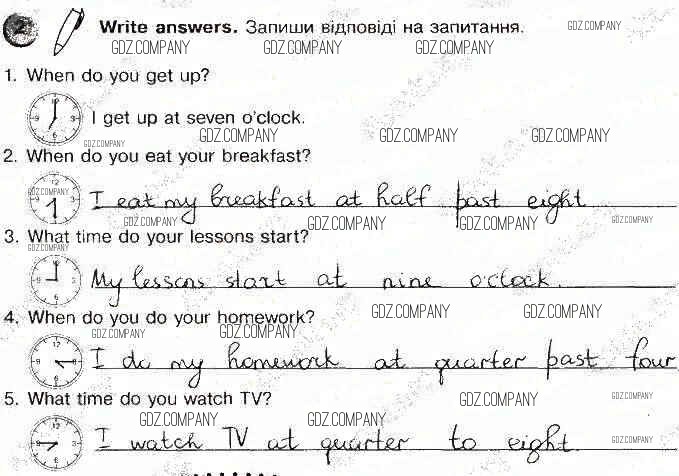 2 Write answers. Запиши відповіді на запитання.
GDZ.COMPANY
GDZ.COMPANY GDZ.COMPANY GDZ.COMPANY
1. When do you get up?
I get up at seven o'clock.
GDZ.COMPANY GDZ.COMPANY GDZ.COMPANY GDZ.COMPANY
2. When do you eat your breakfast?
GDZ.COMPANY
I eat my breakfast at half past eight
GDZ.COMPANY GDZ.COMPANY GDZ.COMPANY GDZ.COMPANY
3. What time do your lessons start?
GDZ.COMPANY
My lessons start at nine o'clock.
GDZ.COMPANY GDZ.COMPANY
4. When do you do your homework?
GDZ.COMPANY GDZ.COMPANY
I do my homework at quarter past four
5. What time do you watch TV?
GDZ.COMPANY GDZ.COMPANY
GDZ.COMPANY GDZ.COMPANY GDZ.COMPANY
I watch TV at quarter to eight
GDZ.COMPANY